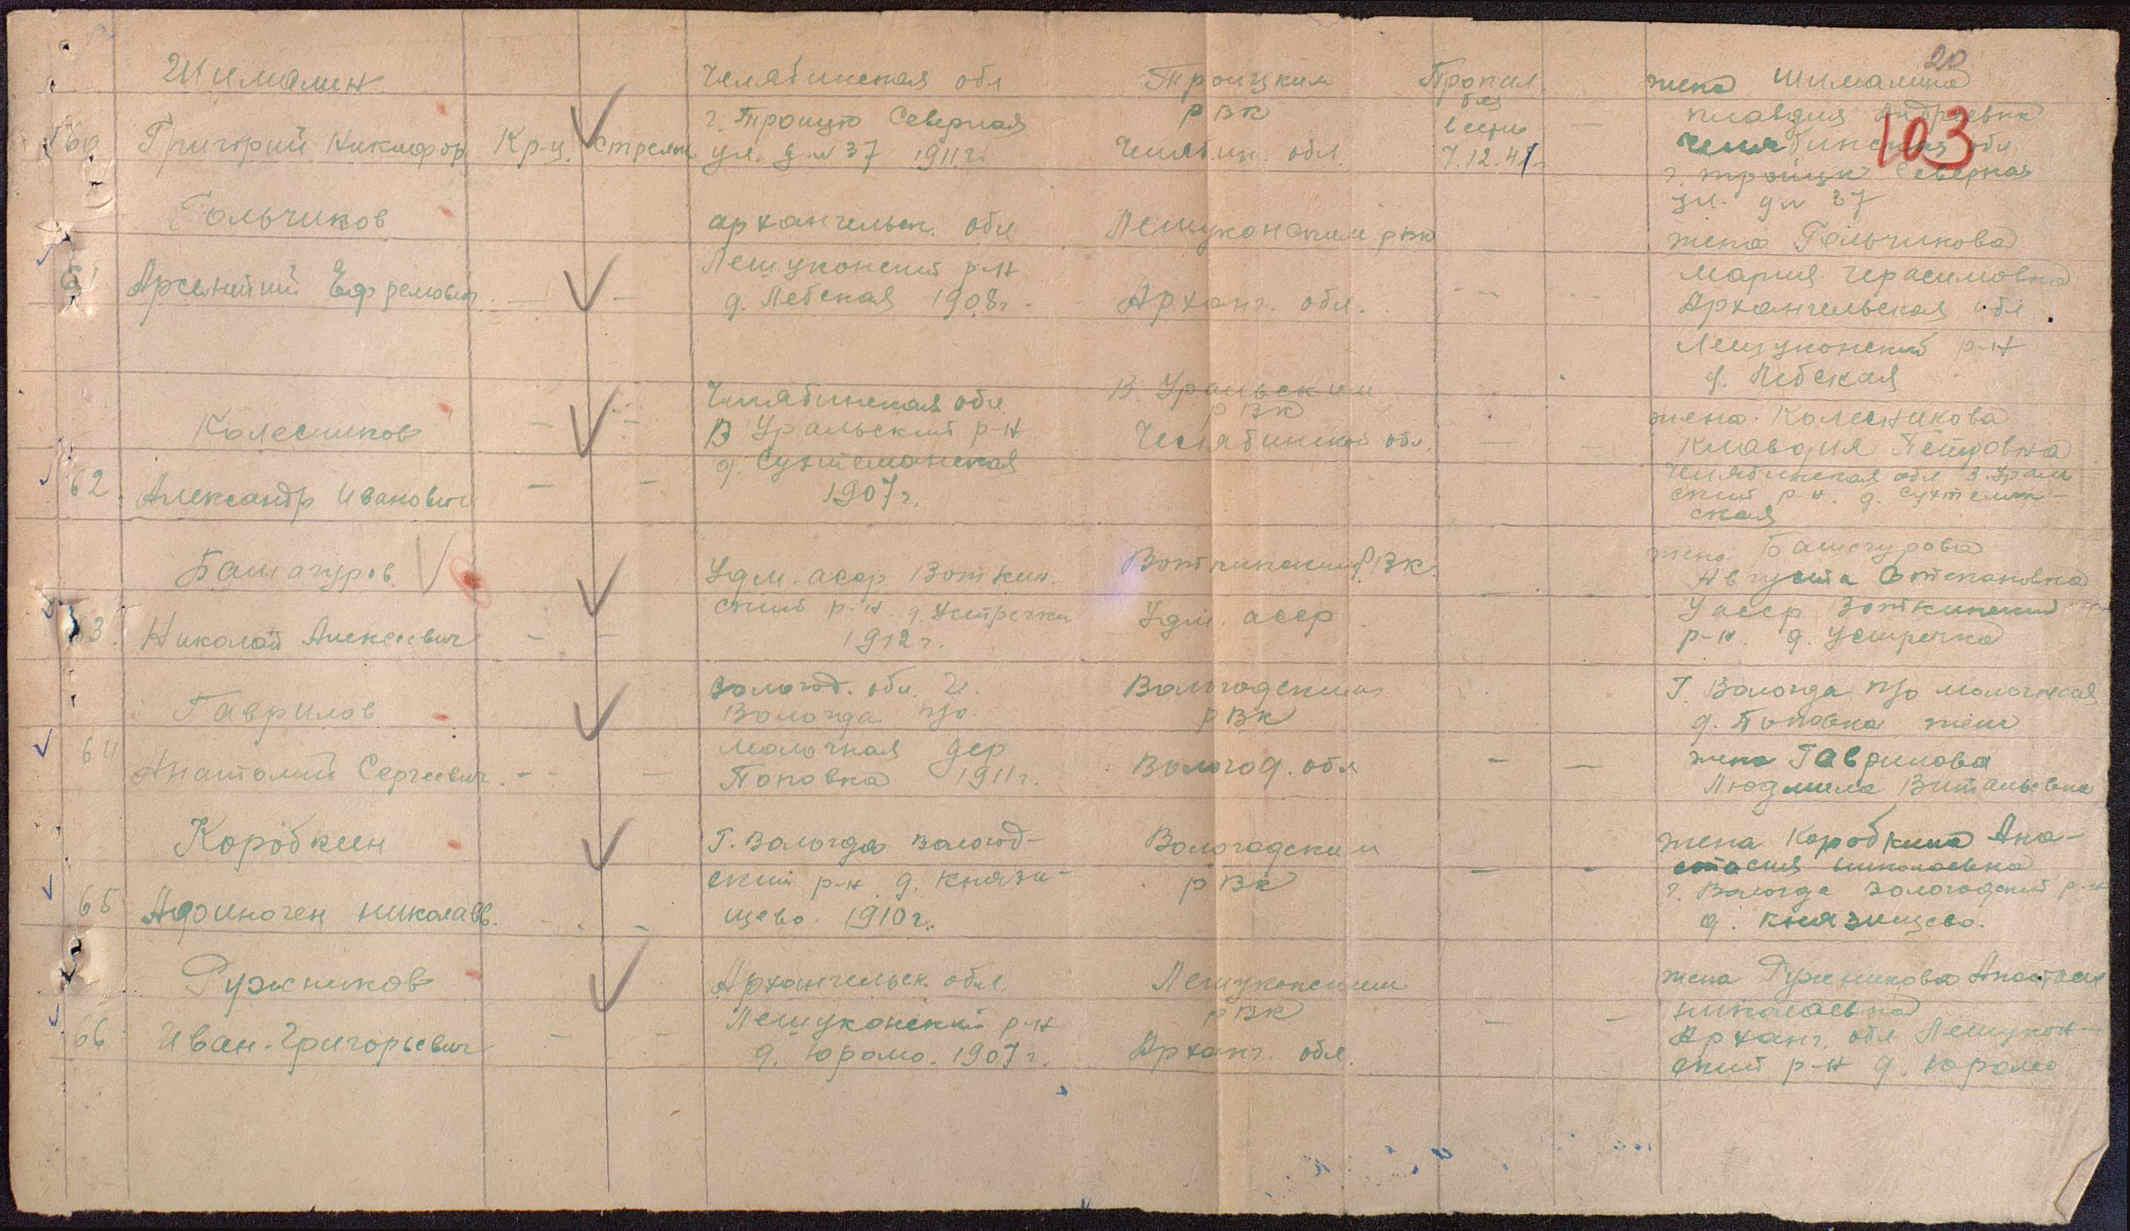 20
103
Шималин
60 Григорий Никифор. Кр-ц. Стрелок
Челябинская обл
г. Троицк Северная
ул. д. № 37 1911 г.
Троицким
РВК
Челябин. обл.
Пропал
без
вести
7.12.41 г.
—
жена Шималина
Клавдия Андреевна
Челябинская обл
г. Троицк Северная
ул. д № 37
Гольчиков
61 Арсентий Ефремович — —
Архангельск. обл
Лешуконский р-н
д. Лебская 1908 г.
Лешуконским РВК
Арханг. обл.
— —
жена Гольчикова
Мария Герасимовна
Архангельская обл.
Лешуконский р-н
д. Лебская
Колесников — —
62 Александр Иванович — —
Челябинская обл
В Уральский р-н
д.
1907 г.
В. Уральским
РВК
Челябинской обл.
— —
жена Колесникова
Клавдия Петровна
Челябинская обл В. Ураль
ский р-н. д.
ская
Башагуров
63. Николай Алексеевич — —
Удм. асср Воткин.
ский р-н д. Устречка
1912 г.
Воткинский РВК.
Удм. асср
— —
жена Башагурова
Августа Степановна
У асср Воткинский
р-н. д. Устречка
Гаврилов
64 Анатолий Сергеевич — —
Вологод. обл. г.
Вологда п/о
Молочная дер
Поповка 1911 г.
Вологодским
РВК
Вологод. обл
— —
Г. Вологда п/о Молочная
д. Поповка
жена Гаврилова
Людмила Витальевна
Коробкин
65 Афиноген Николаев. —
Г. Вологда Вологод-
ский р-н д. Князи-
щево 1910 г.
Вологодским
РВК
— —
жена Коробкина Ана-
стасия Николаевна
г. Вологда Вологодский р-н
д. Князищево.
Ружников
66 Иван Григорьевич — —
Архангельск. обл.
Лешуконский р-н
д. Юрома. 1907 г.
Лешуконским
РВК
Арханг. обл.
— —
жена Ружникова Анастасия
Николаевна
Арханг. обл Лешукон-
ский р-н д. Юрома